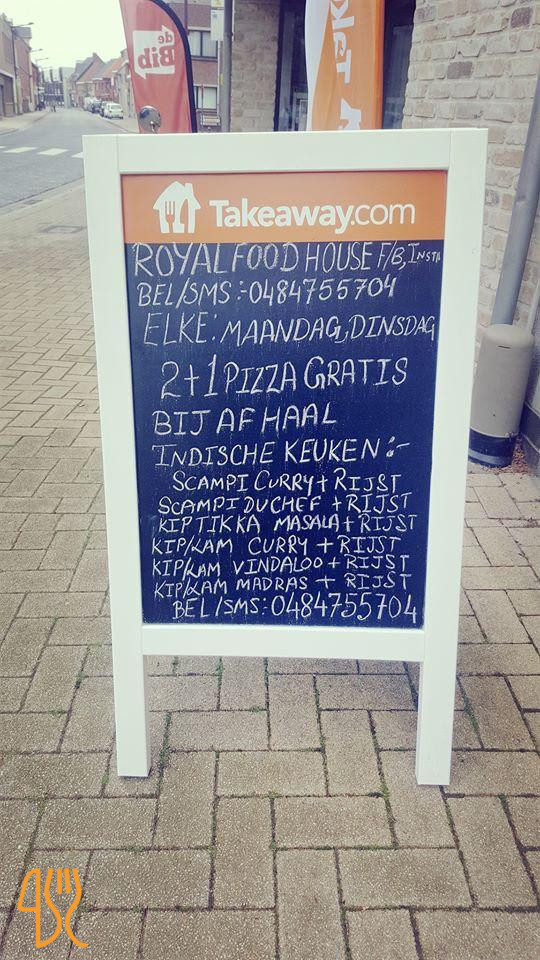 de
Bib
Takeaway.com
ROYAL FOOD HOUSE F/B, INSTA
BEL/SMS:-0484755704
ELKE: MAANDAG, DINSDAG
2+1 PIZZA GRATIS
BIJ AFHAAL
INDISCHE KEUKEN:-
SCAMPI CURRY + RIJST
SCAMPI DU CHEF + RIJST
KIP TIKKA MASALA + RIJST
KIP/LAM CURRY + RIJST
KIP/LAM VINDALOO + RIJST
KIP/LAM MADRAS + RIJST
BEL/SMS: 0484755704